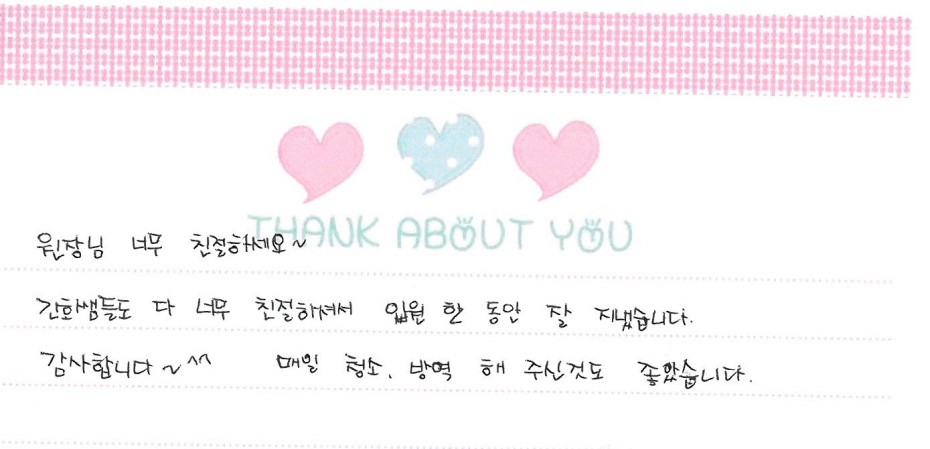 THANK ABOUT YOU
원장님 너무 친절하세요~
간화쌤들도 다 너무 친절하셔서 입원 한 동안 잘 지냈습니다.
감사합니다~^^ 매일 청소, 방역 해 주신것도 좋았습니다.